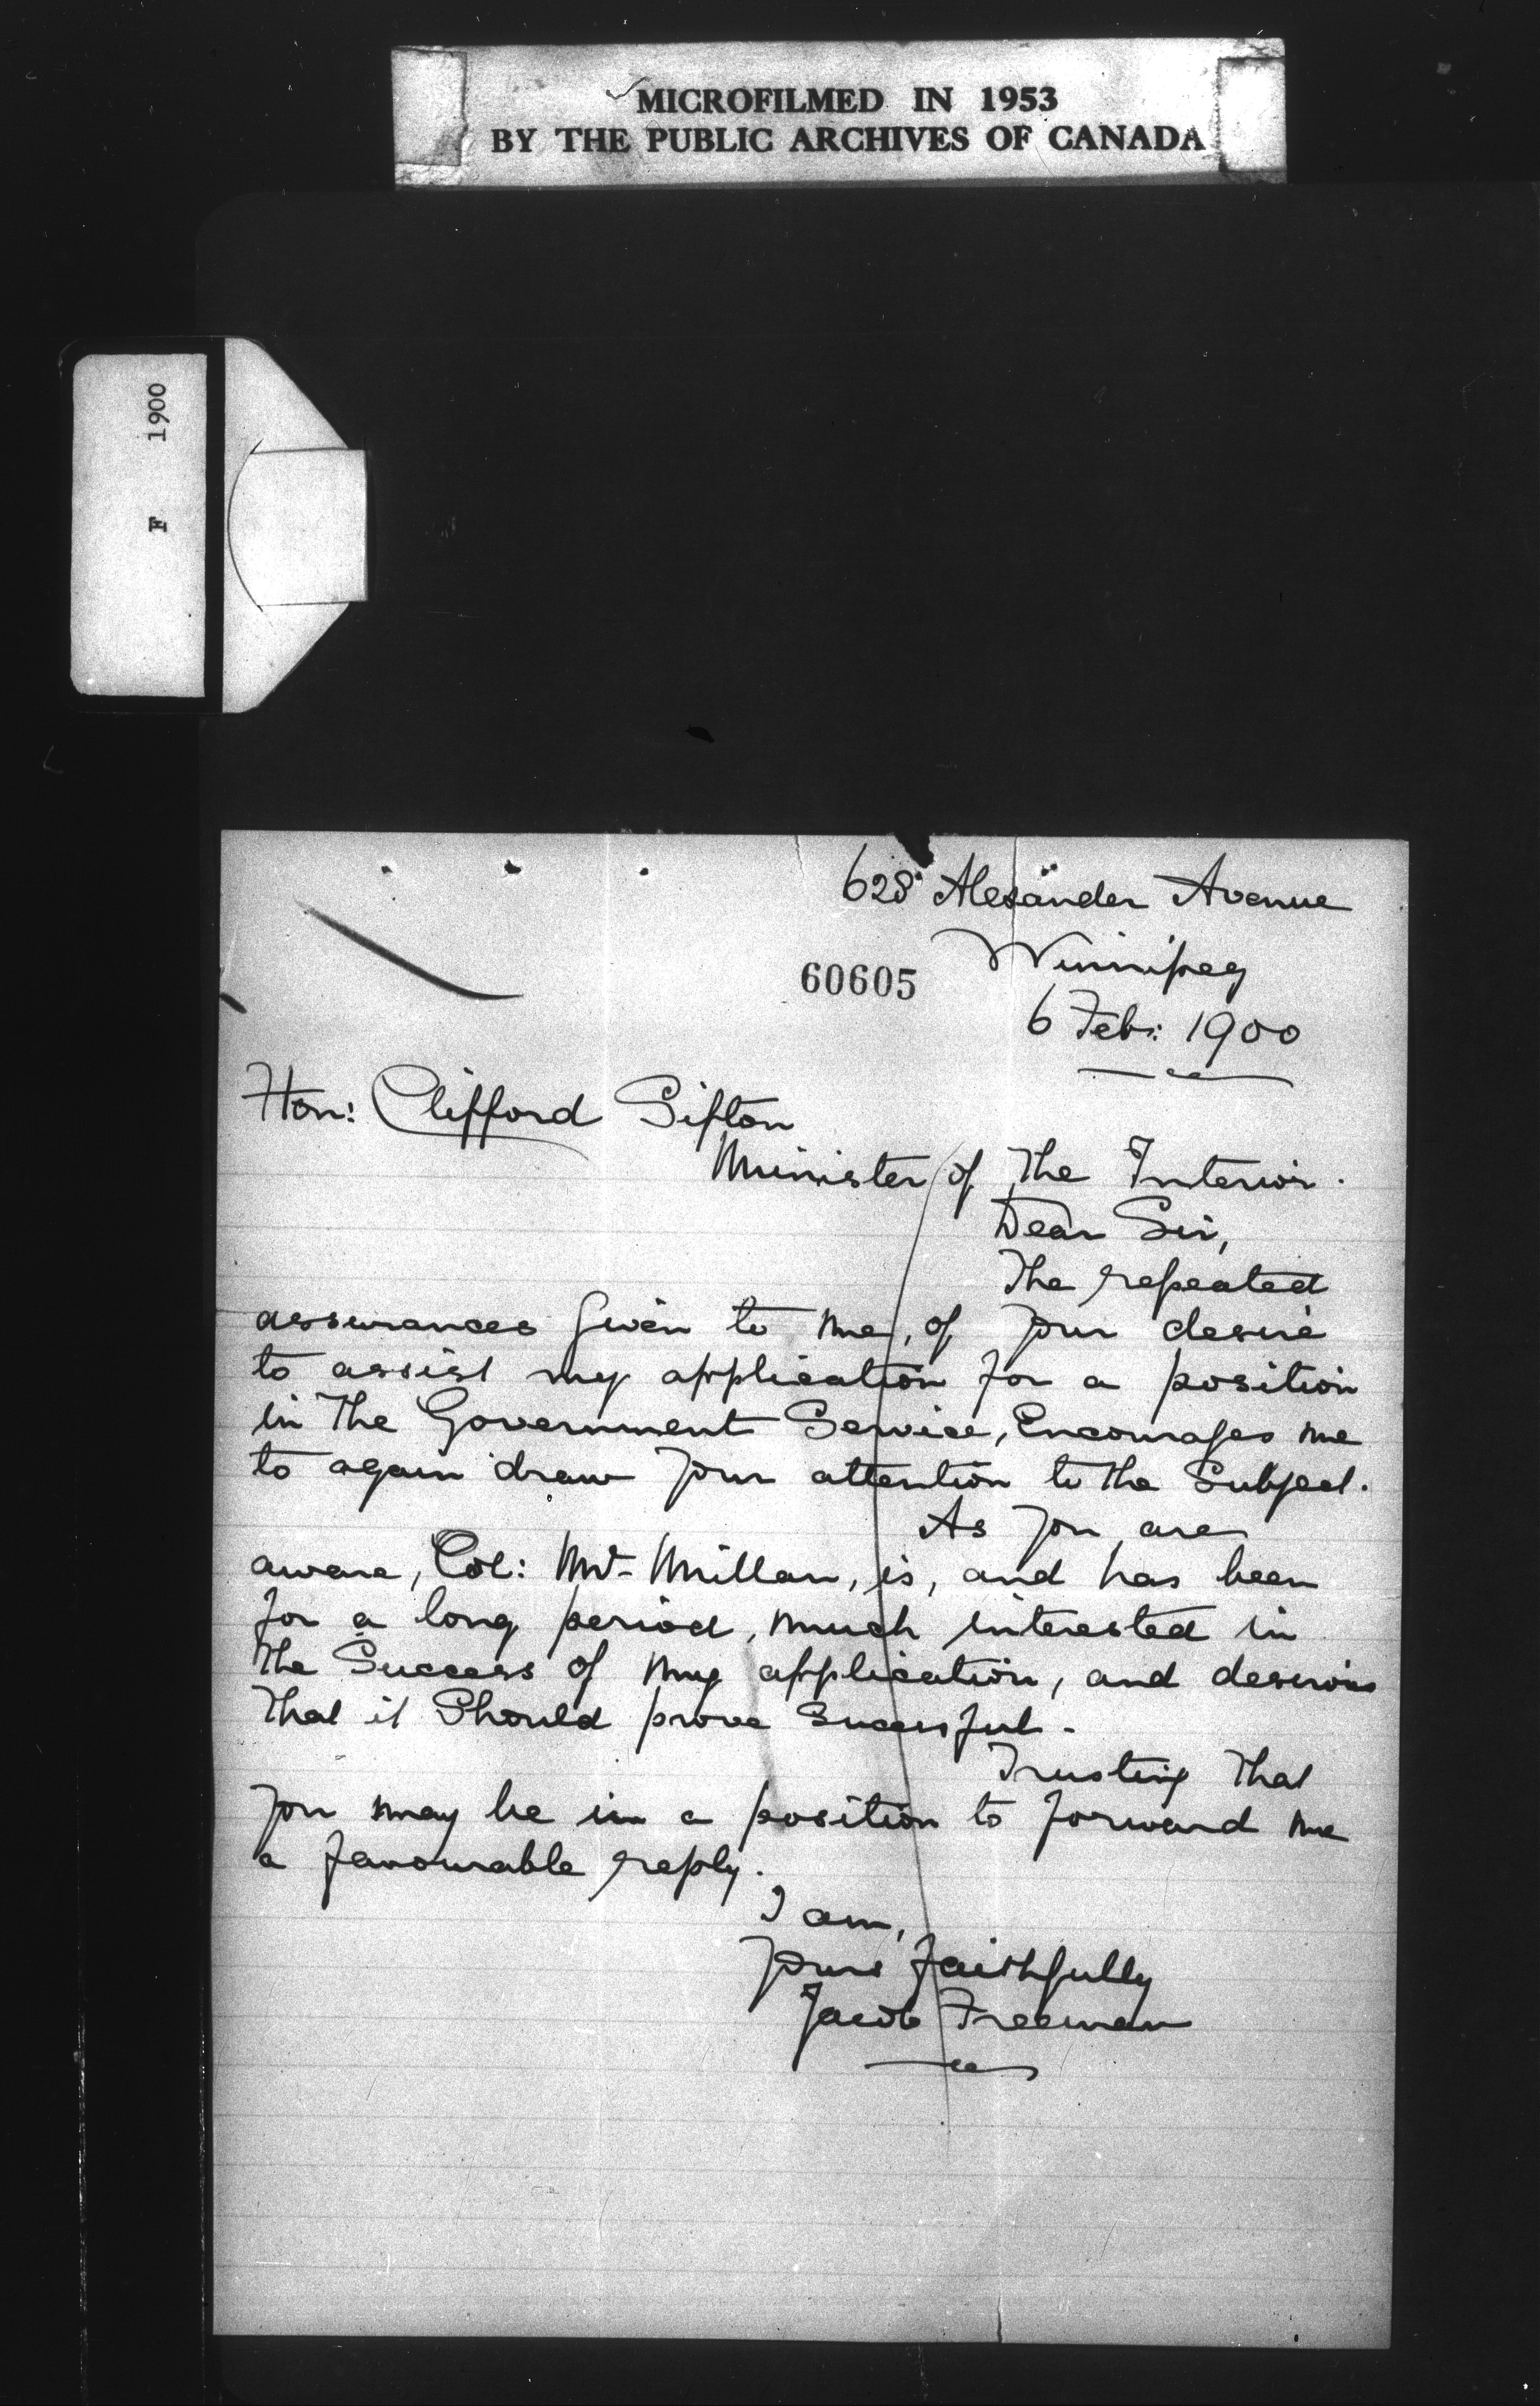 MICROFILMED IN 1953
BY THE PUBLIC ARCHIVES OF CANADA
F 1900
628 Alexander Avenue
Winnipeg
60605
6 Feb: 1900
Hon: Clifford Sifton
Minister of The Interior.
Dear Sir,
The repeated
assurances given to me, of your desire
to assist my application for a position
in The Government Service, Encourages me
to again draw your attention to the Subject.
As you are
aware, Col: Mc-Millan, is, and has been
for a long period, much interested in
The Success of my application, and desirous
That it Should prove Sucessful -
Trusting That
you may be in a position to forward me
a favourable reply.
I am,
yours faithfully
Jacob Freeman